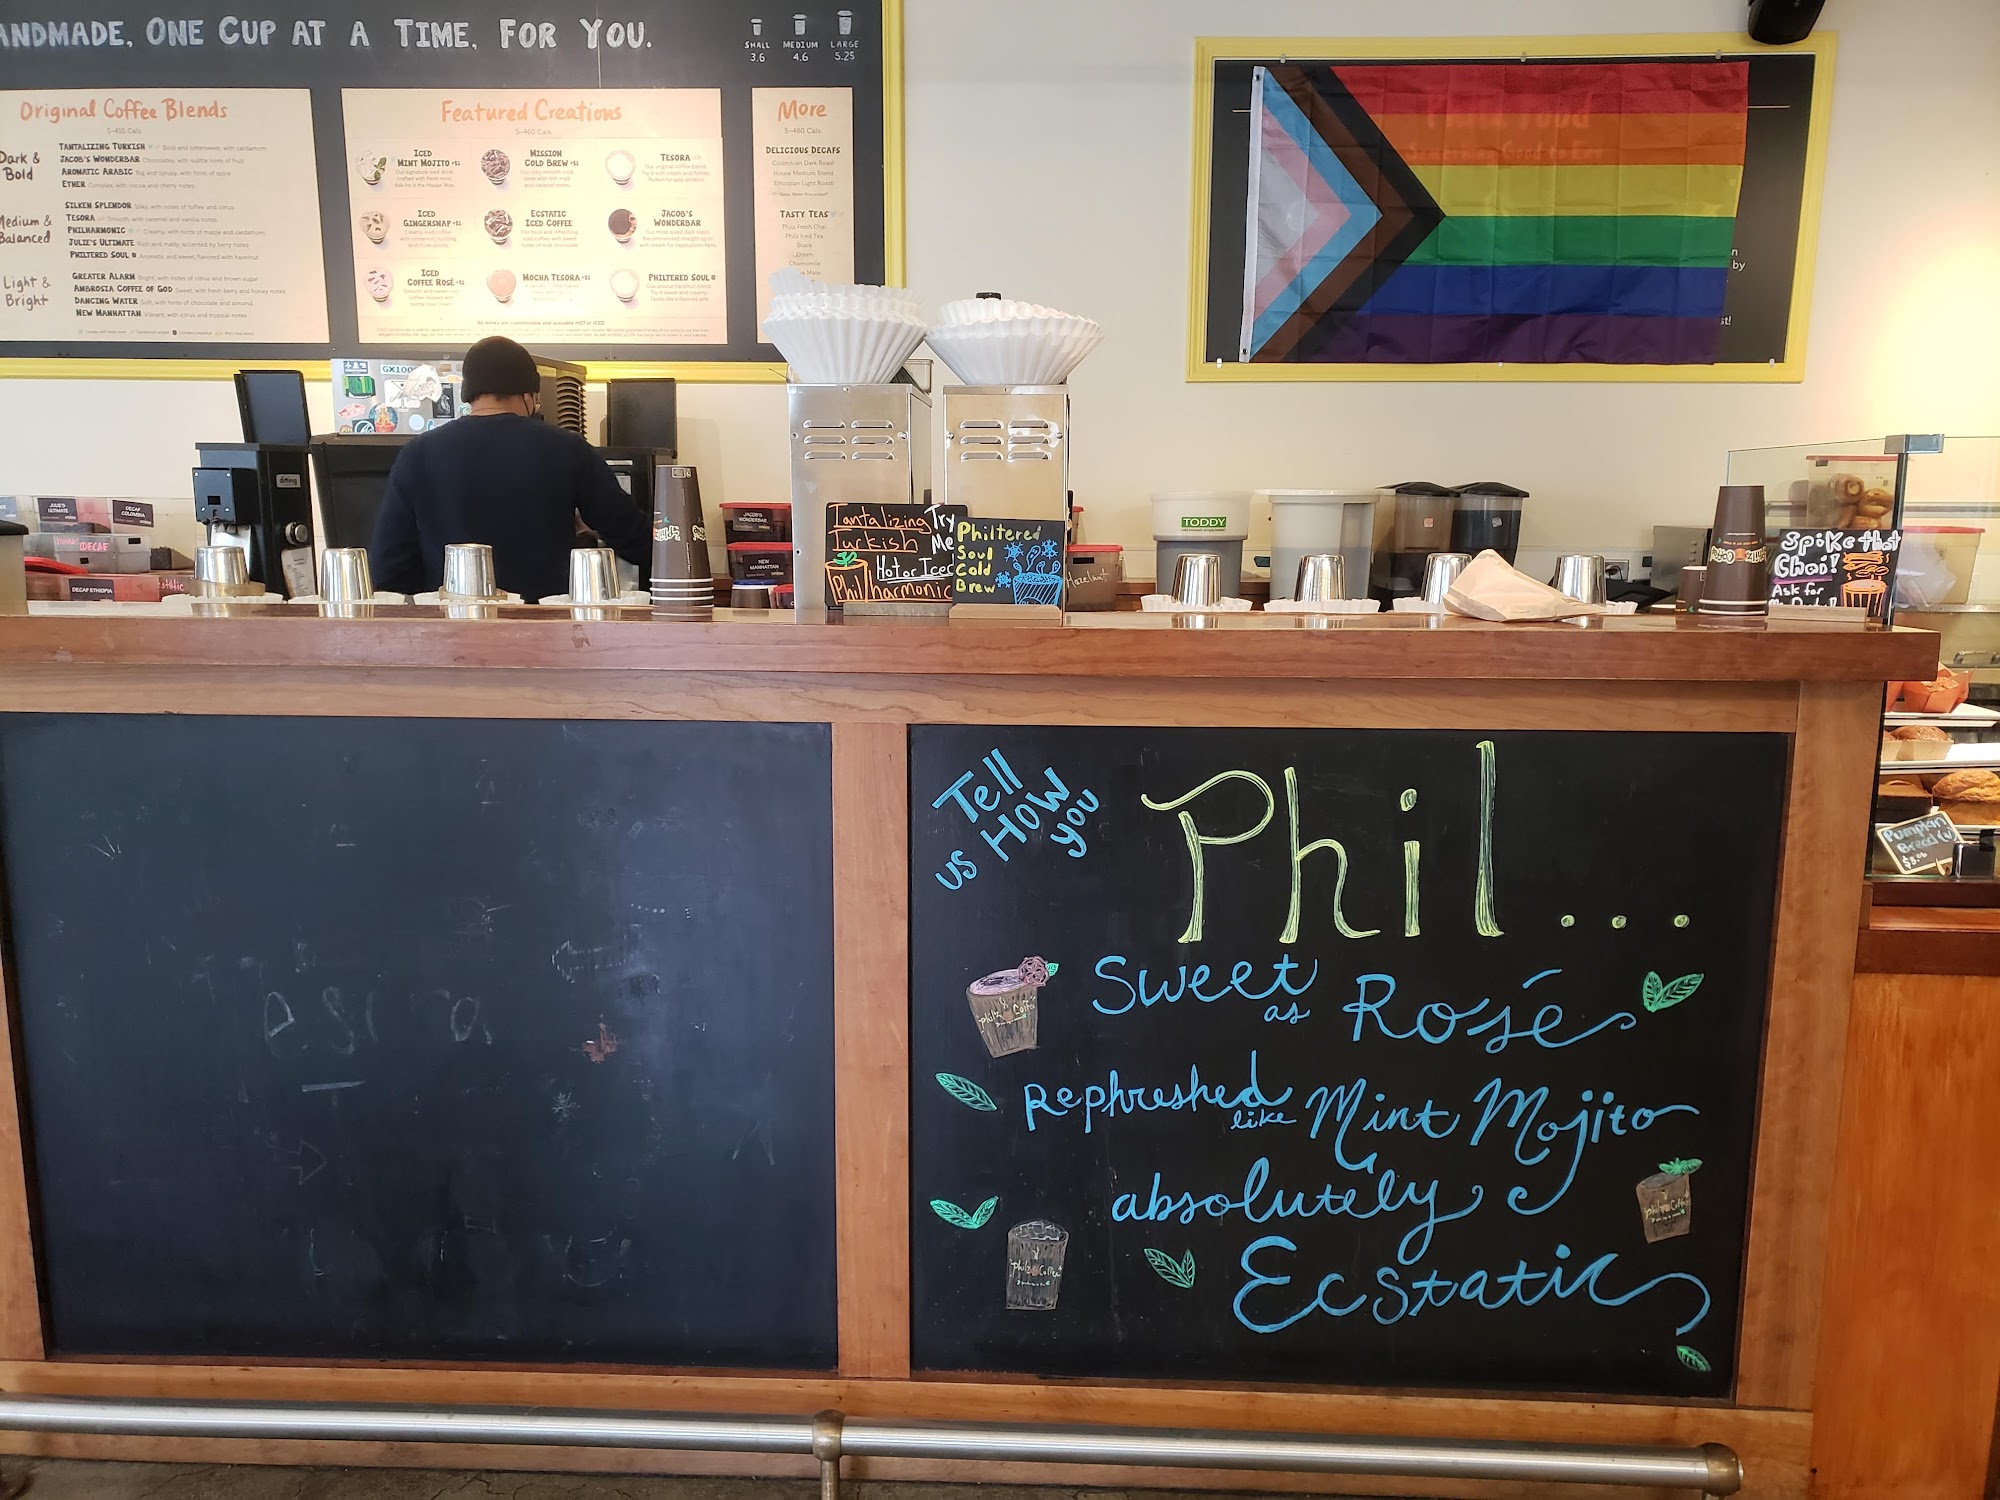 ANDMADE, ONE CUP AT A TIME, FOR YOU.
SMALL 3.6
MEDIUM 4.6
LARGE 5.25
Original Coffee Blends
5-410 Cals
Dark & Bold
TANTALIZING TURKISH Bold and bittersweet, with cardamom
JACOB'S WONDERBAR Chocolatey, with subtle hints of fruit
AROMATIC ARABIC Big and syrupy, with hints of spice
ETHER Complex, with cocoa and cherry notes
Medium & Balanced
SILKEN SPLENDOR Silky, with notes of toffee and citrus
TESORA Smooth, with caramel and vanilla notes
PHILHARMONIC Creamy, with hints of maple and cardamom
JULIE'S ULTIMATE Rich and malty, accented by berry notes
PHILTERED SOUL Aromatic and sweet, flavored with hazelnut
Light & Bright
GREATER ALARM Bright, with notes of citrus and brown sugar
AMBROSIA COFFEE OF GOD Sweet, with fresh berry and honey notes
DANCING WATER Soft, with hints of chocolate and almond
NEW MANHATTAN Vibrant, with citrus and tropical notes
Featured Creations
5-460 Cals
ICED MINT MOJITO +$1
Our signature iced drink crafted with fresh mint.
MISSION COLD BREW +$1
TESORA
Our original coffee blend.
ICED GINGERSNAP +$1
ECSTATIC ICED COFFEE
JACOB'S WONDERBAR
Our most loved dark roast.
ICED COFFEE ROSÉ +$1
MOCHA TESORA +$1
PHILTERED SOUL
More
5-460 Cals
DELICIOUS DECAFS
Colombian Dark Roast
House Medium Blend
Ethiopian Light Roast
TASTY TEAS
Philz Fresh Chai
Philz Iced Tea
Black
Green
Chamomile
Mate
by
st!
GX100
ditting
JULIE'S ULTIMATE
DECAF COLOMBIA
DECAF
DECAF ETHIOPIA
JACOB'S WONDERBAR
NEW MANHATTAN
Tantalizing Turkish
Try Me
Hot or Iced
Philharmonic
Philtered Soul Cold Brew
Hazelnut
TODDY
Spike that Chai!
Ask for
Pumpkin Bread (v)
Tell us How you
Phil...
Sweet as Rosé
Rephreshed like Mint Mojito
absolutely
Ecstatic
Philz Coffee
Philz Coffee
Philz Coffee